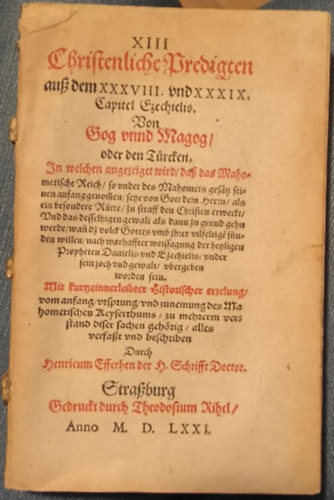 XIII
Christenliche Predigten
auß dem XXXVIII. vnd XXXIX.
Capitel Ezechielis.
Von
Gog vnnd Magog/
oder den Türcken.
In welchen angezeiget wird/ daß das Maho-
metische Reich/ so vnder des Mahomets gesätz sei-
nen anfang genommen/ seye von Gott dem Herrn/ als
ein besondere Rütte/ zu straff den Christen erweckt/
Vnd das desselbigen gewalt als dann zu grund gehn
werde/ wañ dz volck Gottes vmb jhrer vilfeltigẽ sün-
den willen/ nach warhaffter weissagung der heyligen
Propheten Danielis vnd Ezechielis/ vnder
sein joch vnd gewalt/ vbergeben
worden sein.
Mit kurtzeinuerleibter Historischer erzelung/
vom anfang/ vrsprung/ vnd zunemung des Ma
hometischen Keyserthums/ zu mehrerm ver-
stand diser sachen gehörig/ alles
verfaßt vnd beschriben
Durch
Henricum Efferhen der H. Schrifft Doctor.
Straßburg
Gedruckt durch Theodosium Rihel/
Anno M. D. LXXI.